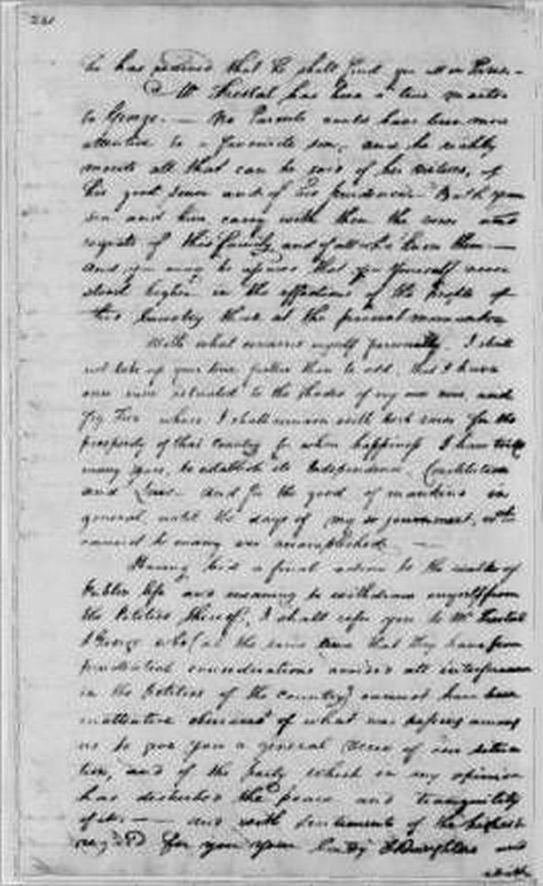 he has received that he shall find you all in Paris.—
Mr Frestal has been a true mentor
to George.— No Parents could have been more
attentive to a favourite son, and he richly
merits all that can be said of his virtues, of
his good sense and of his prudence. Both your
son and him carry with them the vows and
regrets of this family, and of all who know them—
And you may be assured that you yourself never
stood higher in the affections of the People of
this Country than at the present moment.
With what concerns myself personally, I shall
not take up your time further than to add, that I have
once more retreated to the shades of my own vine, and
Fig Tree where I shall remain with best vows for the
prosperity of that Country for whose happiness I have toiled
many years, to establish its Independence, Constitution
and Laws— And for the good of mankind in
general, until the days of my sojournment, wch
cannot be many are accomplished. —
Having bid a final adieu to the walks of
Public life and meaning to withdraw myself from
the Politics thereof, I shall refer you to Mr Frestal
& George who (at the same time that they have from
prudential considerations avoided all interference
in the Politics of the Country) cannot have been
inattentive observers of what was passing among
us to give you a general view of our situa
tion, and of the party which in my opinion
has disturbed the peace and tranquility
of it.— and with sentiments of the highest
regard for you your Lady & Daughters and